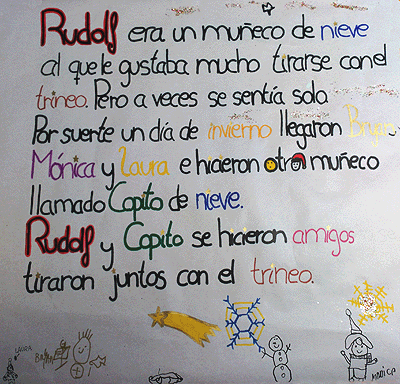 Rudolf era un muñeco de nieve
al que le gustaba mucho tirarse con el
trineo. Pero a veces se sentía solo
Por suerte un día de invierno llegaron Bryan
Mónica y Laura e hicieron otro muñeco
llamado Copito de nieve.
Rudolf y Copito se hicieron amigos
tiraron juntos con el trineo.
LAURA